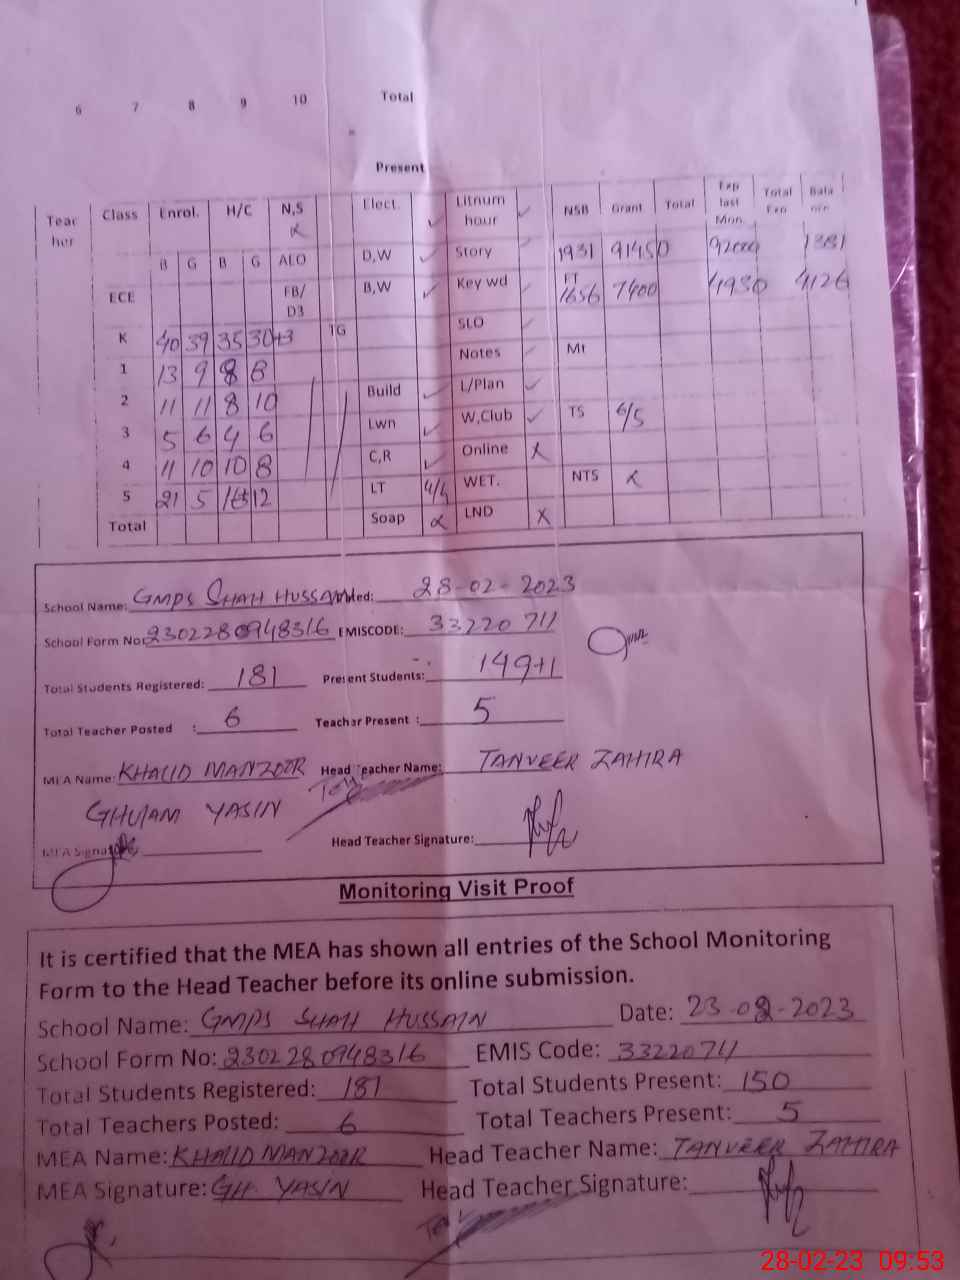 6 7 8 9 10 Total
Present
Teacher Class Enrol. H/C N,S Elect. ✓ Litnum hour ✓ NSB Grant Total Exp last Mon. Total Exp Balance
B G B G ALO D,W ✓ Story 1931 91450 1381
ECE FB/D3 B,W ✓ Key wd FT 1656 7400 4930 4126
K 40 39 35 30+3 TG SLO
1 13 9 8 8 Notes Mt
2 11 11 8 10 Build ✓ L/Plan ✓
3 5 6 4 6 Lwn ✓ W,Club ✓ TS 6/5
4 11 10 10 8 C,R ✓ Online X
5 21 5 12 LT 4/4 WET. NTS
Total Soap LND X
School Name: GMPS SHAH HUSSAIN 28-02-2023
School Form No: 2302280948316 EMISCODE: 33220711
Total Students Registered: 181 Present Students: 149+1
Total Teacher Posted : 6 Teacher Present : 5
MEA Name: KHALID MANZOOR Head Teacher Name: TANVEER ZAHIRA
GHULAM YASIN
MEA Signature: Head Teacher Signature:
Monitoring Visit Proof
It is certified that the MEA has shown all entries of the School Monitoring
Form to the Head Teacher before its online submission.
School Name: GMPS SHAH HUSSAIN Date: 23-02-2023
School Form No: 2302280948316 EMIS Code: 33220711
Total Students Registered: 181 Total Students Present: 150
Total Teachers Posted: 6 Total Teachers Present: 5
MEA Name: KHALID MANZOOR Head Teacher Name: TANVEER ZAHIRA
MEA Signature: GH. YASIN Head Teacher Signature:
28-02-23 09:53